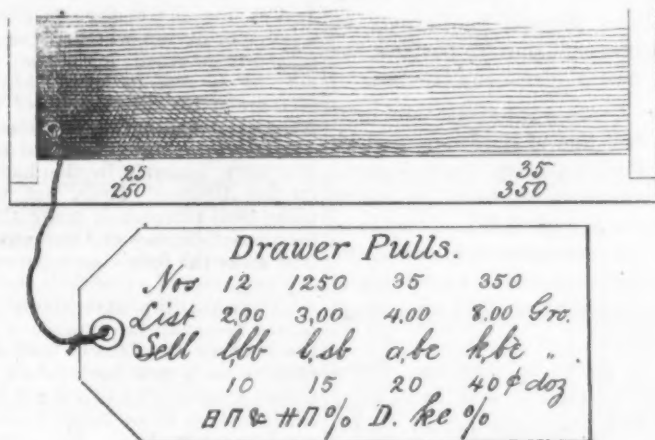 25 35
250 350
Drawer Pulls.
Nos 12 1250 35 350
List 2,00 3,00 4,00 8.00 Gro.
Sell l,bb b,sb a,be k,be „
10 15 20 40 ¢ doz
D. ke %